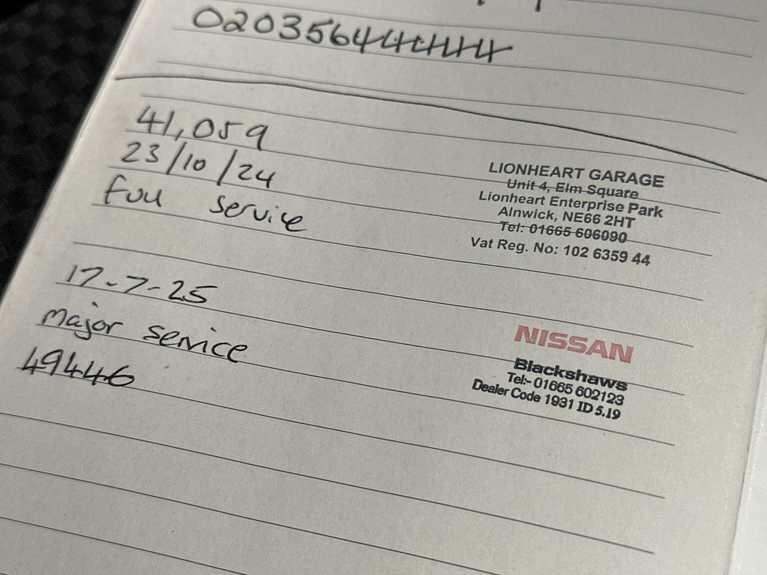 02035644444
41,059
23/10/24
full service
LIONHEART GARAGE
Unit 4, Elm Square
Lionheart Enterprise Park
Alnwick, NE66 2HT
Tel: 01665 606090
Vat Reg. No: 102 6359 44
17-7-25
Major service
49446
NISSAN
Blackshaws
Tel:- 01665 602123
Dealer Code 1931 ID 5.19